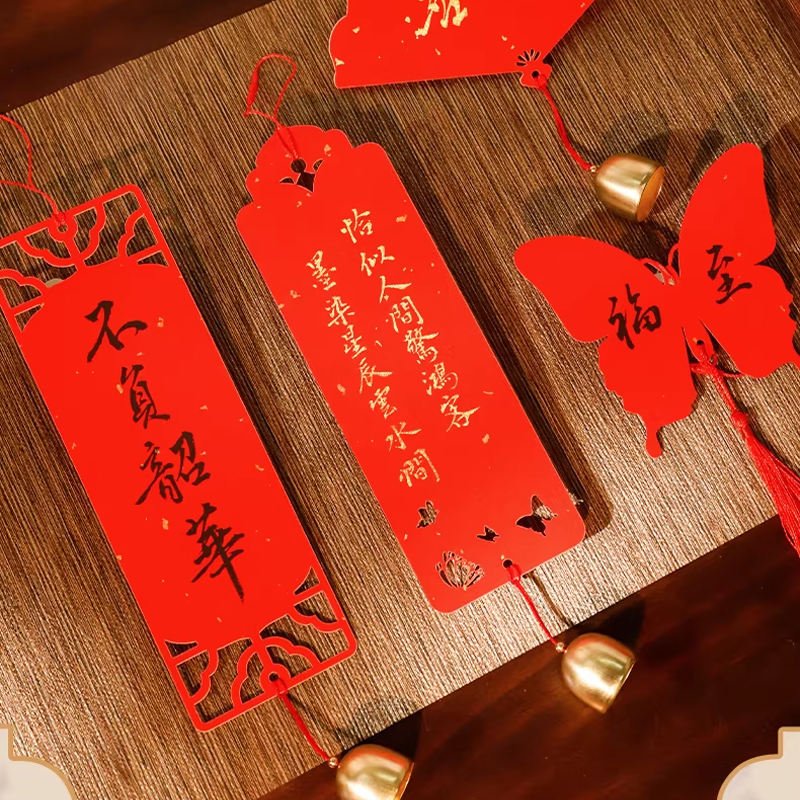 不負韶華
恰似人間驚鴻客
墨染星辰雲水間
福至